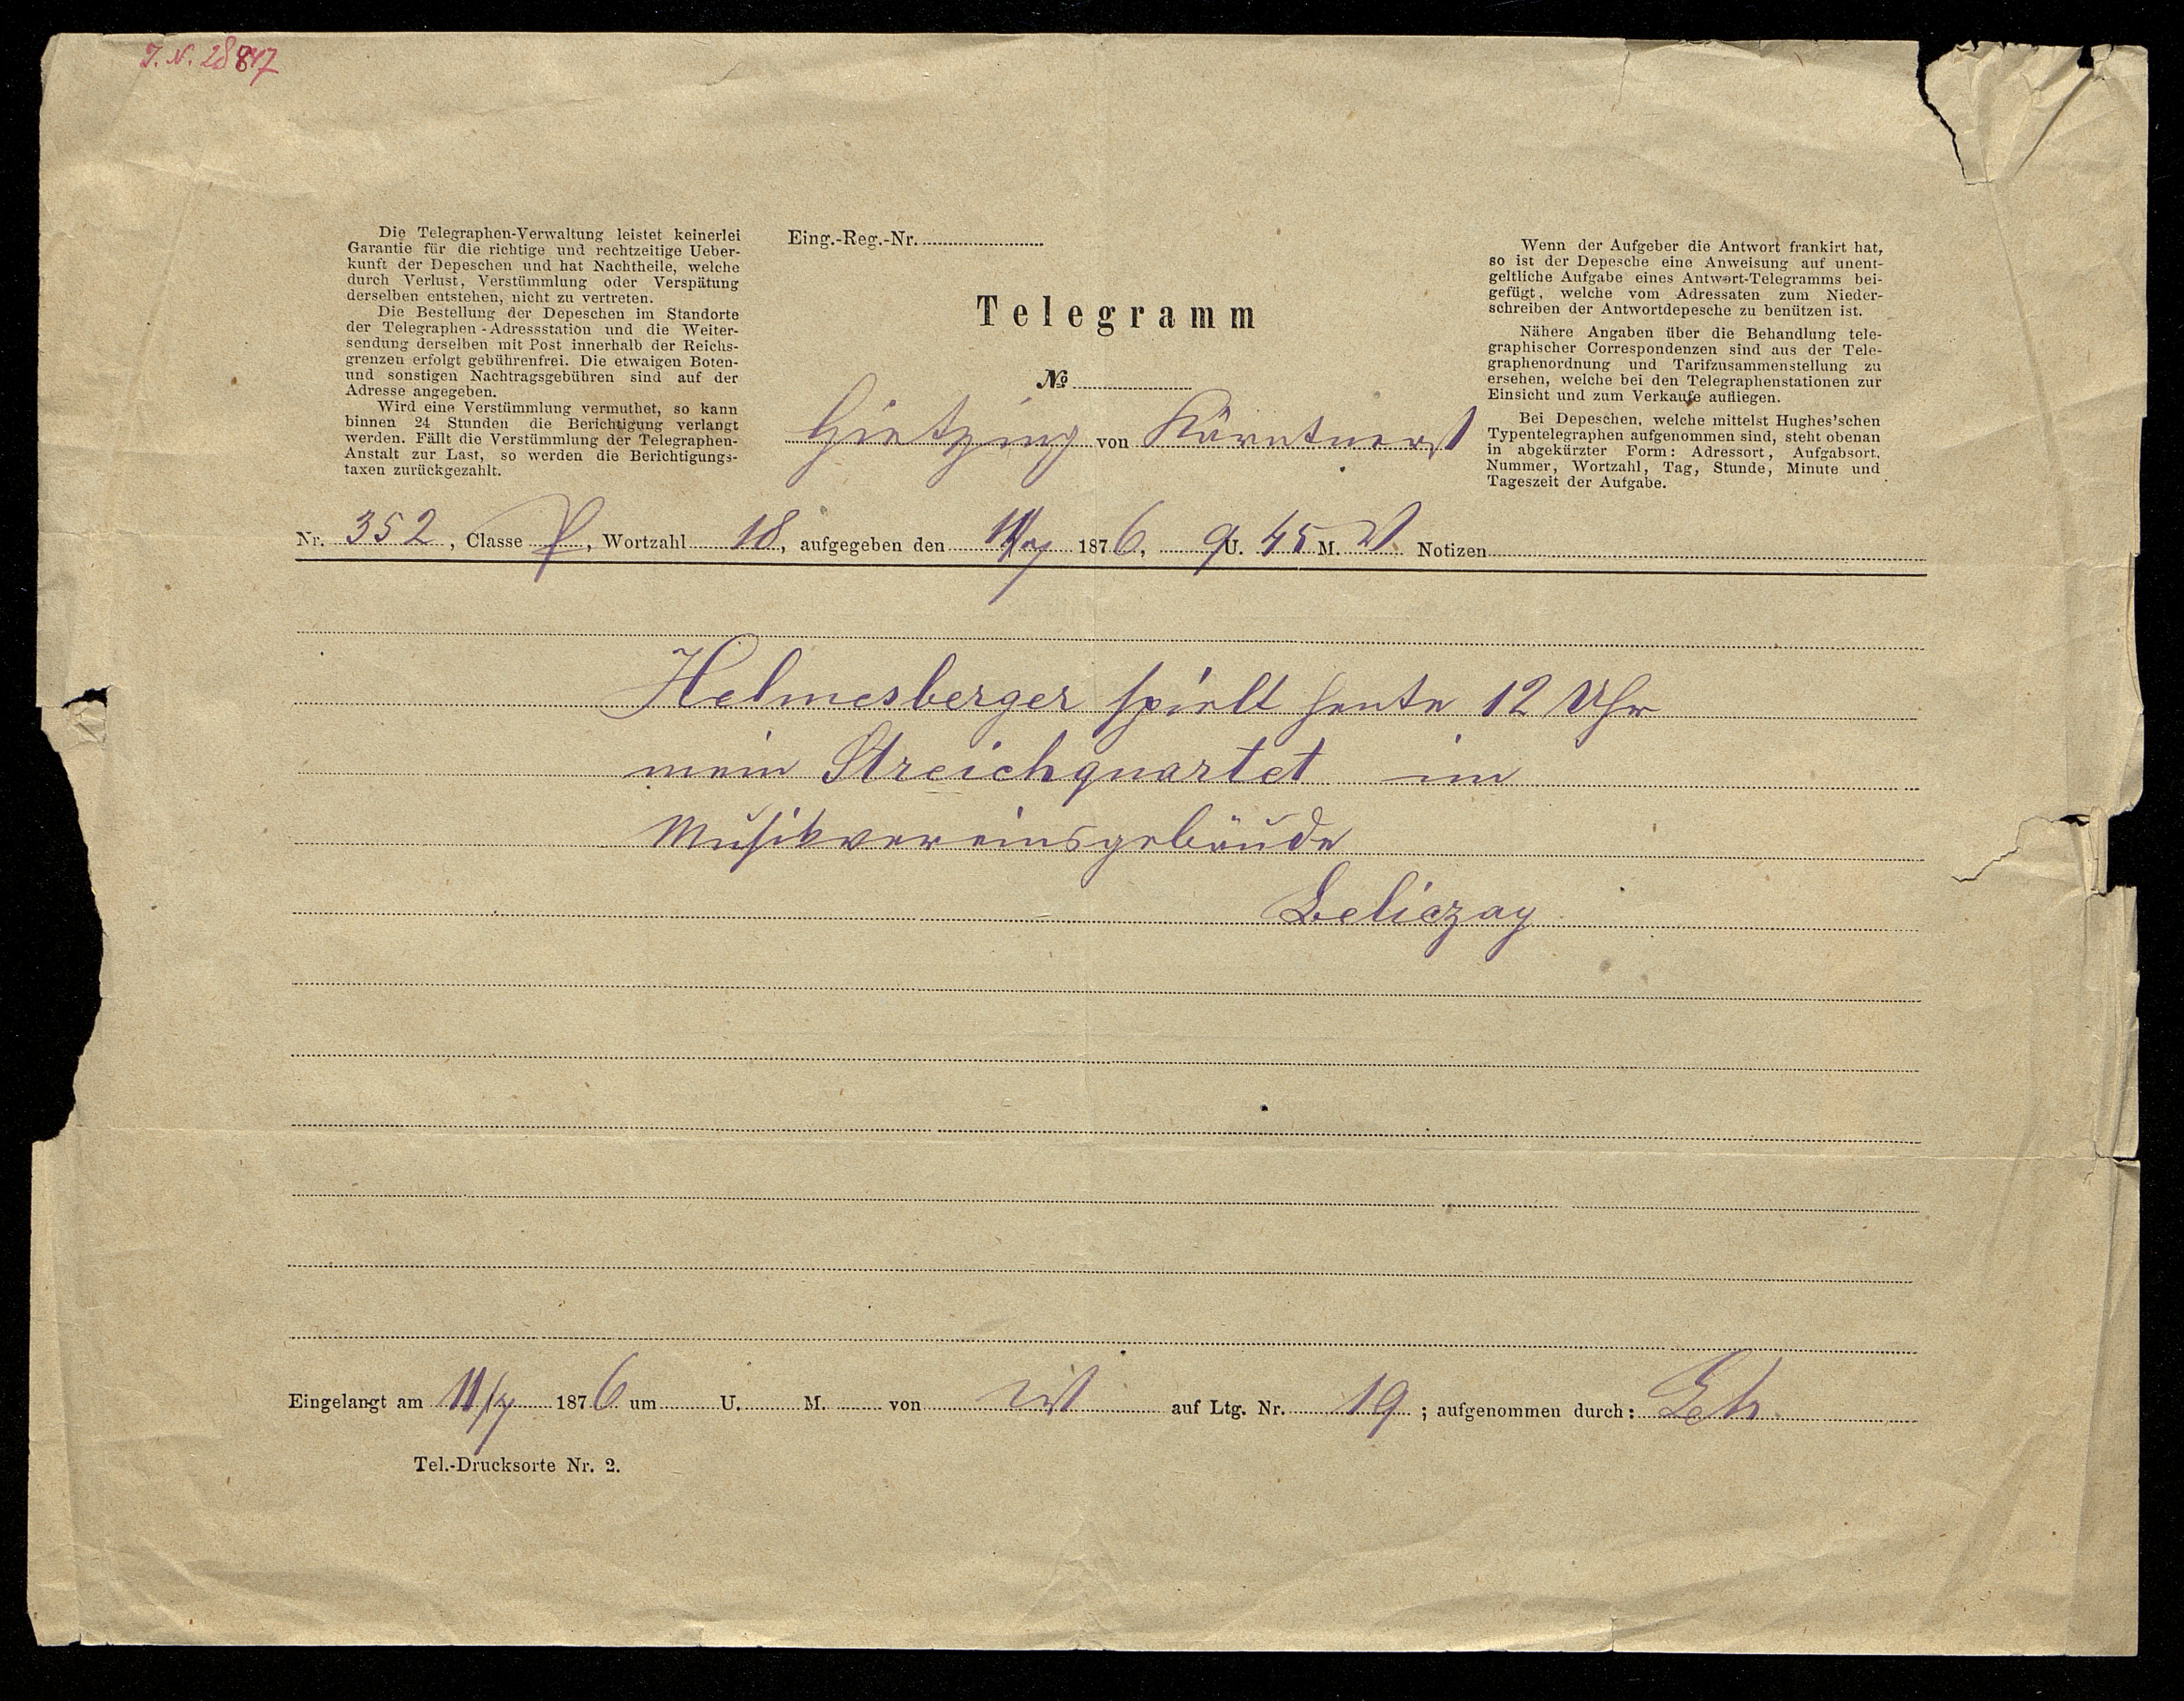 J. N. 28847
Die Telegraphen-Verwaltung leistet keinerlei
Garantie für die richtige und rechtzeitige Ueber-
kunft der Depeschen und hat Nachtheile, welche
durch Verlust, Verstümmlung oder Verspätung
derselben entstehen, nicht zu vertreten.
Die Bestellung der Depeschen im Standorte
der Telegraphen-Adressstation und die Weiter-
sendung derselben mit Post innerhalb der Reichs-
grenzen erfolgt gebührenfrei. Die etwaigen Boten-
und sonstigen Nachtragsgebühren sind auf der
Adresse angegeben.
Wird eine Verstümmlung vermuthet, so kann
binnen 24 Stunden die Berichtigung verlangt
werden. Fällt die Verstümmlung der Telegraphen-
Anstalt zur Last, so werden die Berichtigungs-
taxen zurückgezahlt.
Eing.-Reg.-Nr.
Telegramm
No
Hietzing von Kärntnerst
Wenn der Aufgeber die Antwort frankirt hat,
so ist der Depesche eine Anweisung auf unent-
geltliche Aufgabe eines Antwort-Telegramms bei-
gefügt, welche vom Adressaten zum Nieder-
schreiben der Antwortdepesche zu benützen ist.
Nähere Angaben über die Behandlung tele-
graphischer Correspondenzen sind aus der Tele-
graphenordnung und Tarifzusammenstellung zu
ersehen, welche bei den Telegraphenstationen zur
Einsicht und zum Verkaufe aufliegen.
Bei Depeschen, welche mittelst Hughes'schen
Typentelegraphen aufgenommen sind, steht obenan
in abgekürzter Form: Adressort, Aufgabsort,
Nummer, Wortzahl, Tag, Stunde, Minute und
Tageszeit der Aufgabe.
Nr. 352, Classe P, Wortzahl 18, aufgegeben den 1876, 9 U. 45 M. Notizen
Helmesberger spielt heute 12 Uhr
mein Streichquartet im
Musikvereinsgebäude
Beliczay
Eingelangt am 11/7 1876 um U. M. von auf Ltg. Nr. 19; aufgenommen durch:
Tel.-Drucksorte Nr. 2.